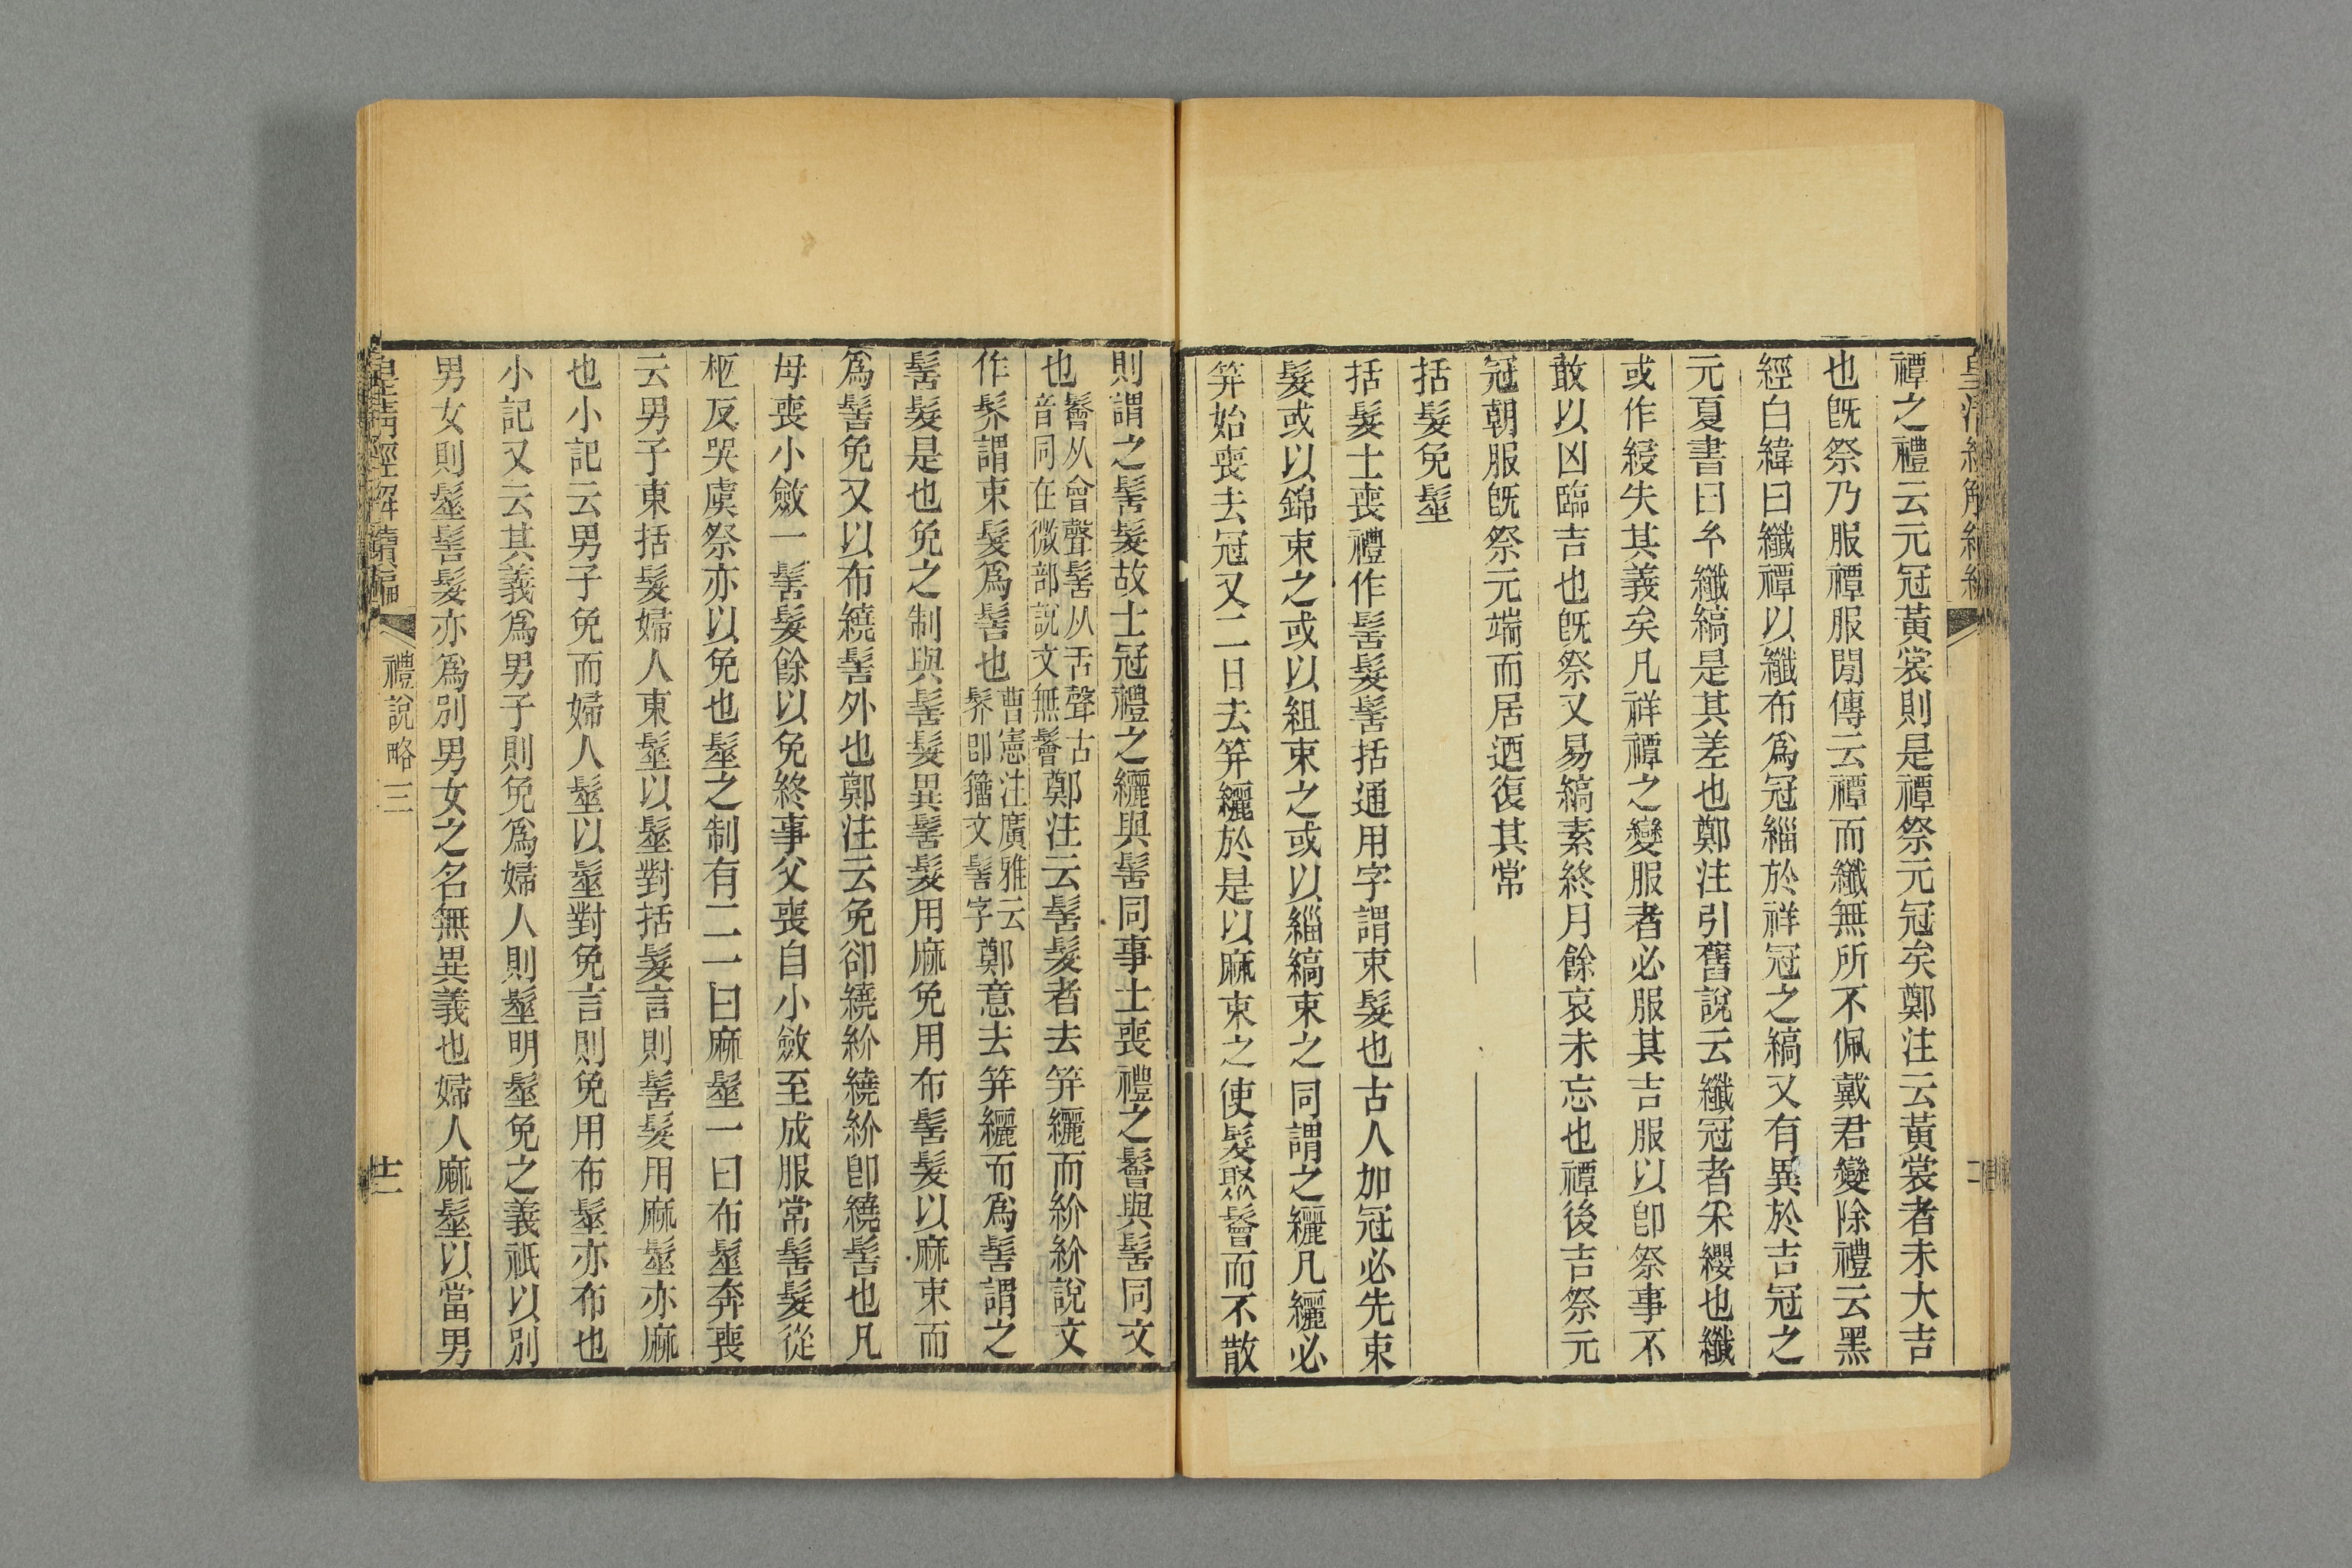 禫之禮云元冠黃裳則是禫祭元冠矣鄭注云黃裳者未大吉
也旣祭乃服禫服閒傳云禫而纖無所不佩戴君變除禮云黑
經白緯曰纖禫以纖布爲冠緇於祥冠之縞又有異於吉冠之
元夏書曰厹纖縞是其差也鄭注引舊說云纖冠者采纓也纖
或作綅失其義矣凡祥禫之變服者必服其吉服以卽祭事不
敢以凶臨吉也旣祭又易縞素終月餘哀未忘也禫後吉祭元
冠朝服旣祭元端而居迺復其常
括髮免髽
括髮士喪禮作髺髮髺括通用字謂束髮也古人加冠必先束
髮或以錦束之或以組束之或以緇縞束之同謂之纚凡纚必
筓始喪去冠又二日去筓纚於是以麻束之使髮聚鬠而不散
則謂之髺髮故士冠禮之纚與髺同事士喪禮之鬠與髺同文
也鬠从會聲髺从𠯑聲古音同在微部說文無鬠鄭注云髺髮者去筓纚而紒紒說文
作髤謂束髮爲髺也曹憲注廣雅云髤卽籒文髺字鄭意去筓纚而爲髺謂之
髺髮是也免之制與髺髮異髺髮用麻免用布髺髮以麻束而
爲髺免又以布繞髺外也鄭注云免卻繞紒繞紒卽繞髺也凡
母喪小斂一髺髮餘以免終事父喪自小斂至成服常髺髮從
柩反哭虞祭亦以免也髽之制有二一曰麻髽一曰布髽奔喪
云男子東括髮婦人東髽以髽對括髮言則髺髮用麻髽亦麻
也小記云男子免而婦人髽以髽對免言則免用布髽亦布也
小記又云其義爲男子則免爲婦人則髽明髽免之義祇以別
男女則髽髺髮亦爲別男女之名無異義也婦人麻髽以當男
皇清經解續編
禮說略三
十二